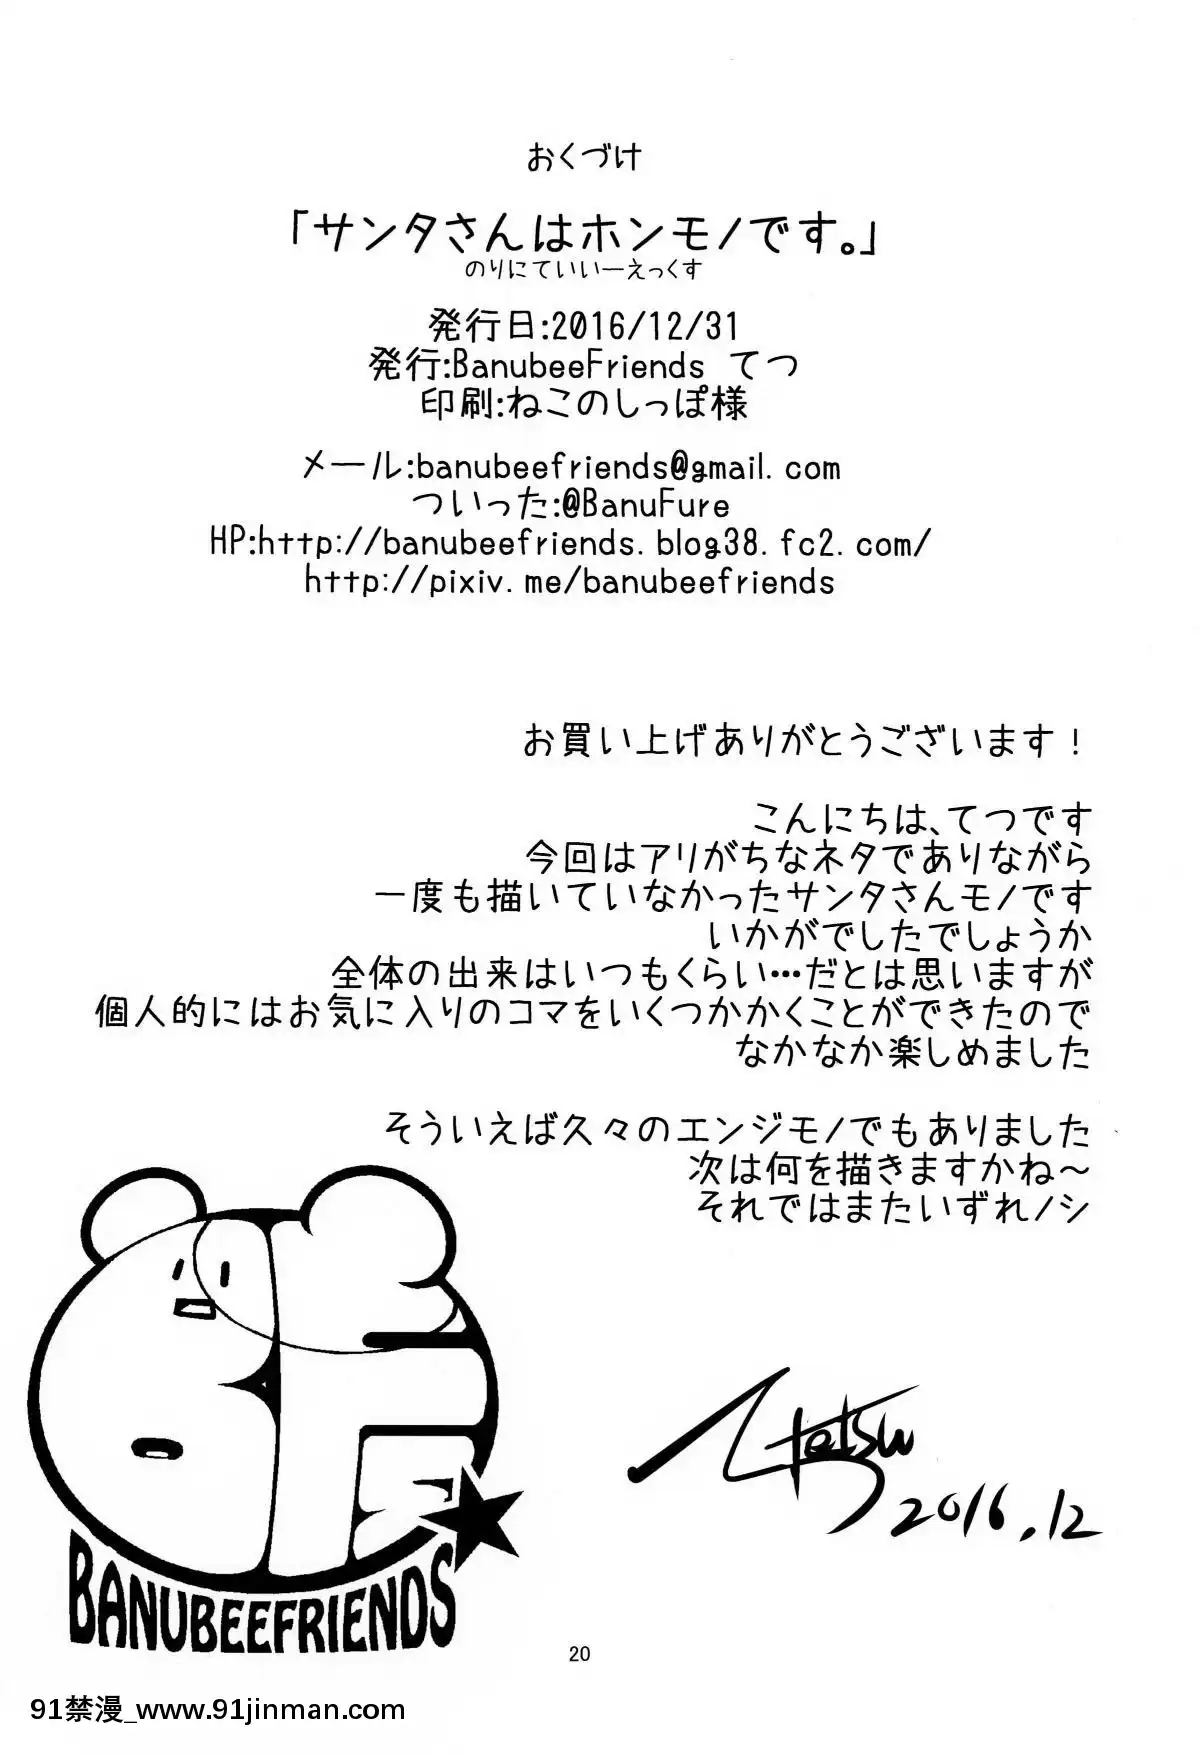 おくづけ
「サンタさんはホンモノです。」
のりにていいーえっくす
発行日:2016/12/31
発行:BanubeeFriends てつ
印刷:ねこのしっぽ様
メール:banubeefriends@gmail.com
ついった:@BanuFure
HP:http://banubeefriends.blog38.fc2.com/
http://pixiv.me/banubeefriends
お買い上げありがとうございます!
こんにちは、てつです
今回はアリがちなネタでありながら
一度も描いていなかったサンタさんモノです
いかがでしたでしょうか
全体の出来はいつもくらい…だとは思いますが
個人的にはお気に入りのコマをいくつかかくことができたので
なかなか楽しめました
そういえば久々のエンジモノでもありました
次は何を描きますかね~
それではまたいずれノシ
Tetsu
2016.12
BANUBEEFRIENDS
20
91禁漫_www.91jinman.com